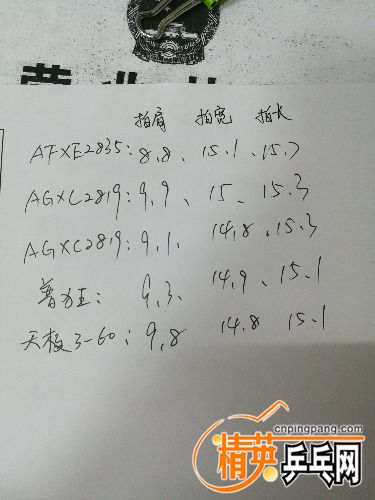 拍肩 拍宽 拍长
AFXE2835: 8.8、 15.1、15.7
AGXC2819: 9.9、 15、 15.3
AGXC2819: 9.1、 14.8、15.3
普拉王: 9.3、 14.9、 15.1
天极3-60: 9.8 14.8 15.1
cnpingpang.com
精英乒乓网